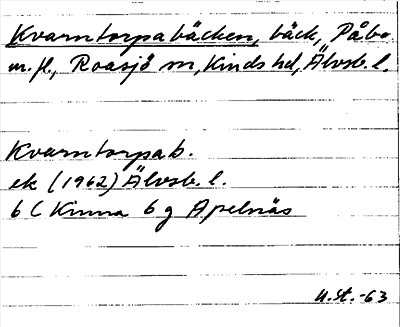 Kvarntorpabäcken, bäck, Påbo
m.fl., Roasjö sn, Kinds hd, Älvsb. l.
Kvarntorpab.
ek (1962) Älvsb. l.
6 C Kinna 6 g Apelnäs
U.St.-63